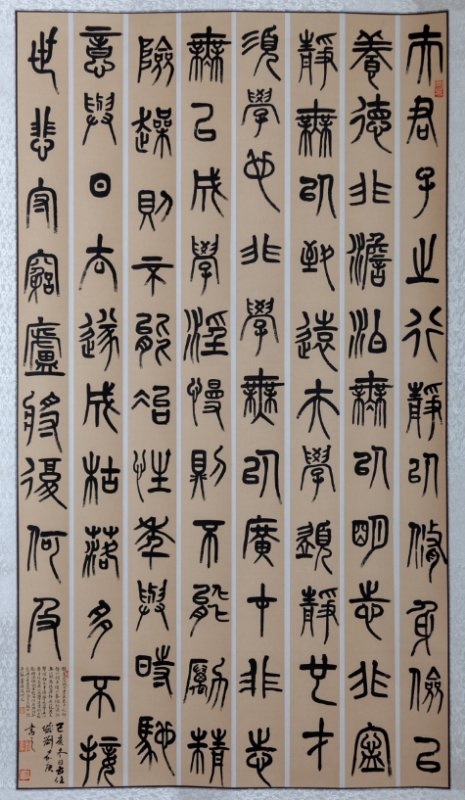 夫君子之行靜以脩身儉以
養德非澹泊無以明志非寧
靜無以致遠夫學須靜也才
須學也非學無以廣才非志
無以成學淫慢則不能勵精
險躁則不能治性年與時馳
意與日去遂成枯落多不接
世悲守窮廬將復何及